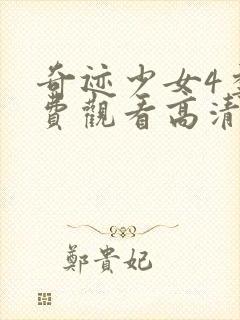 奇迹少女4季
費觀看高清
鄭貴妃